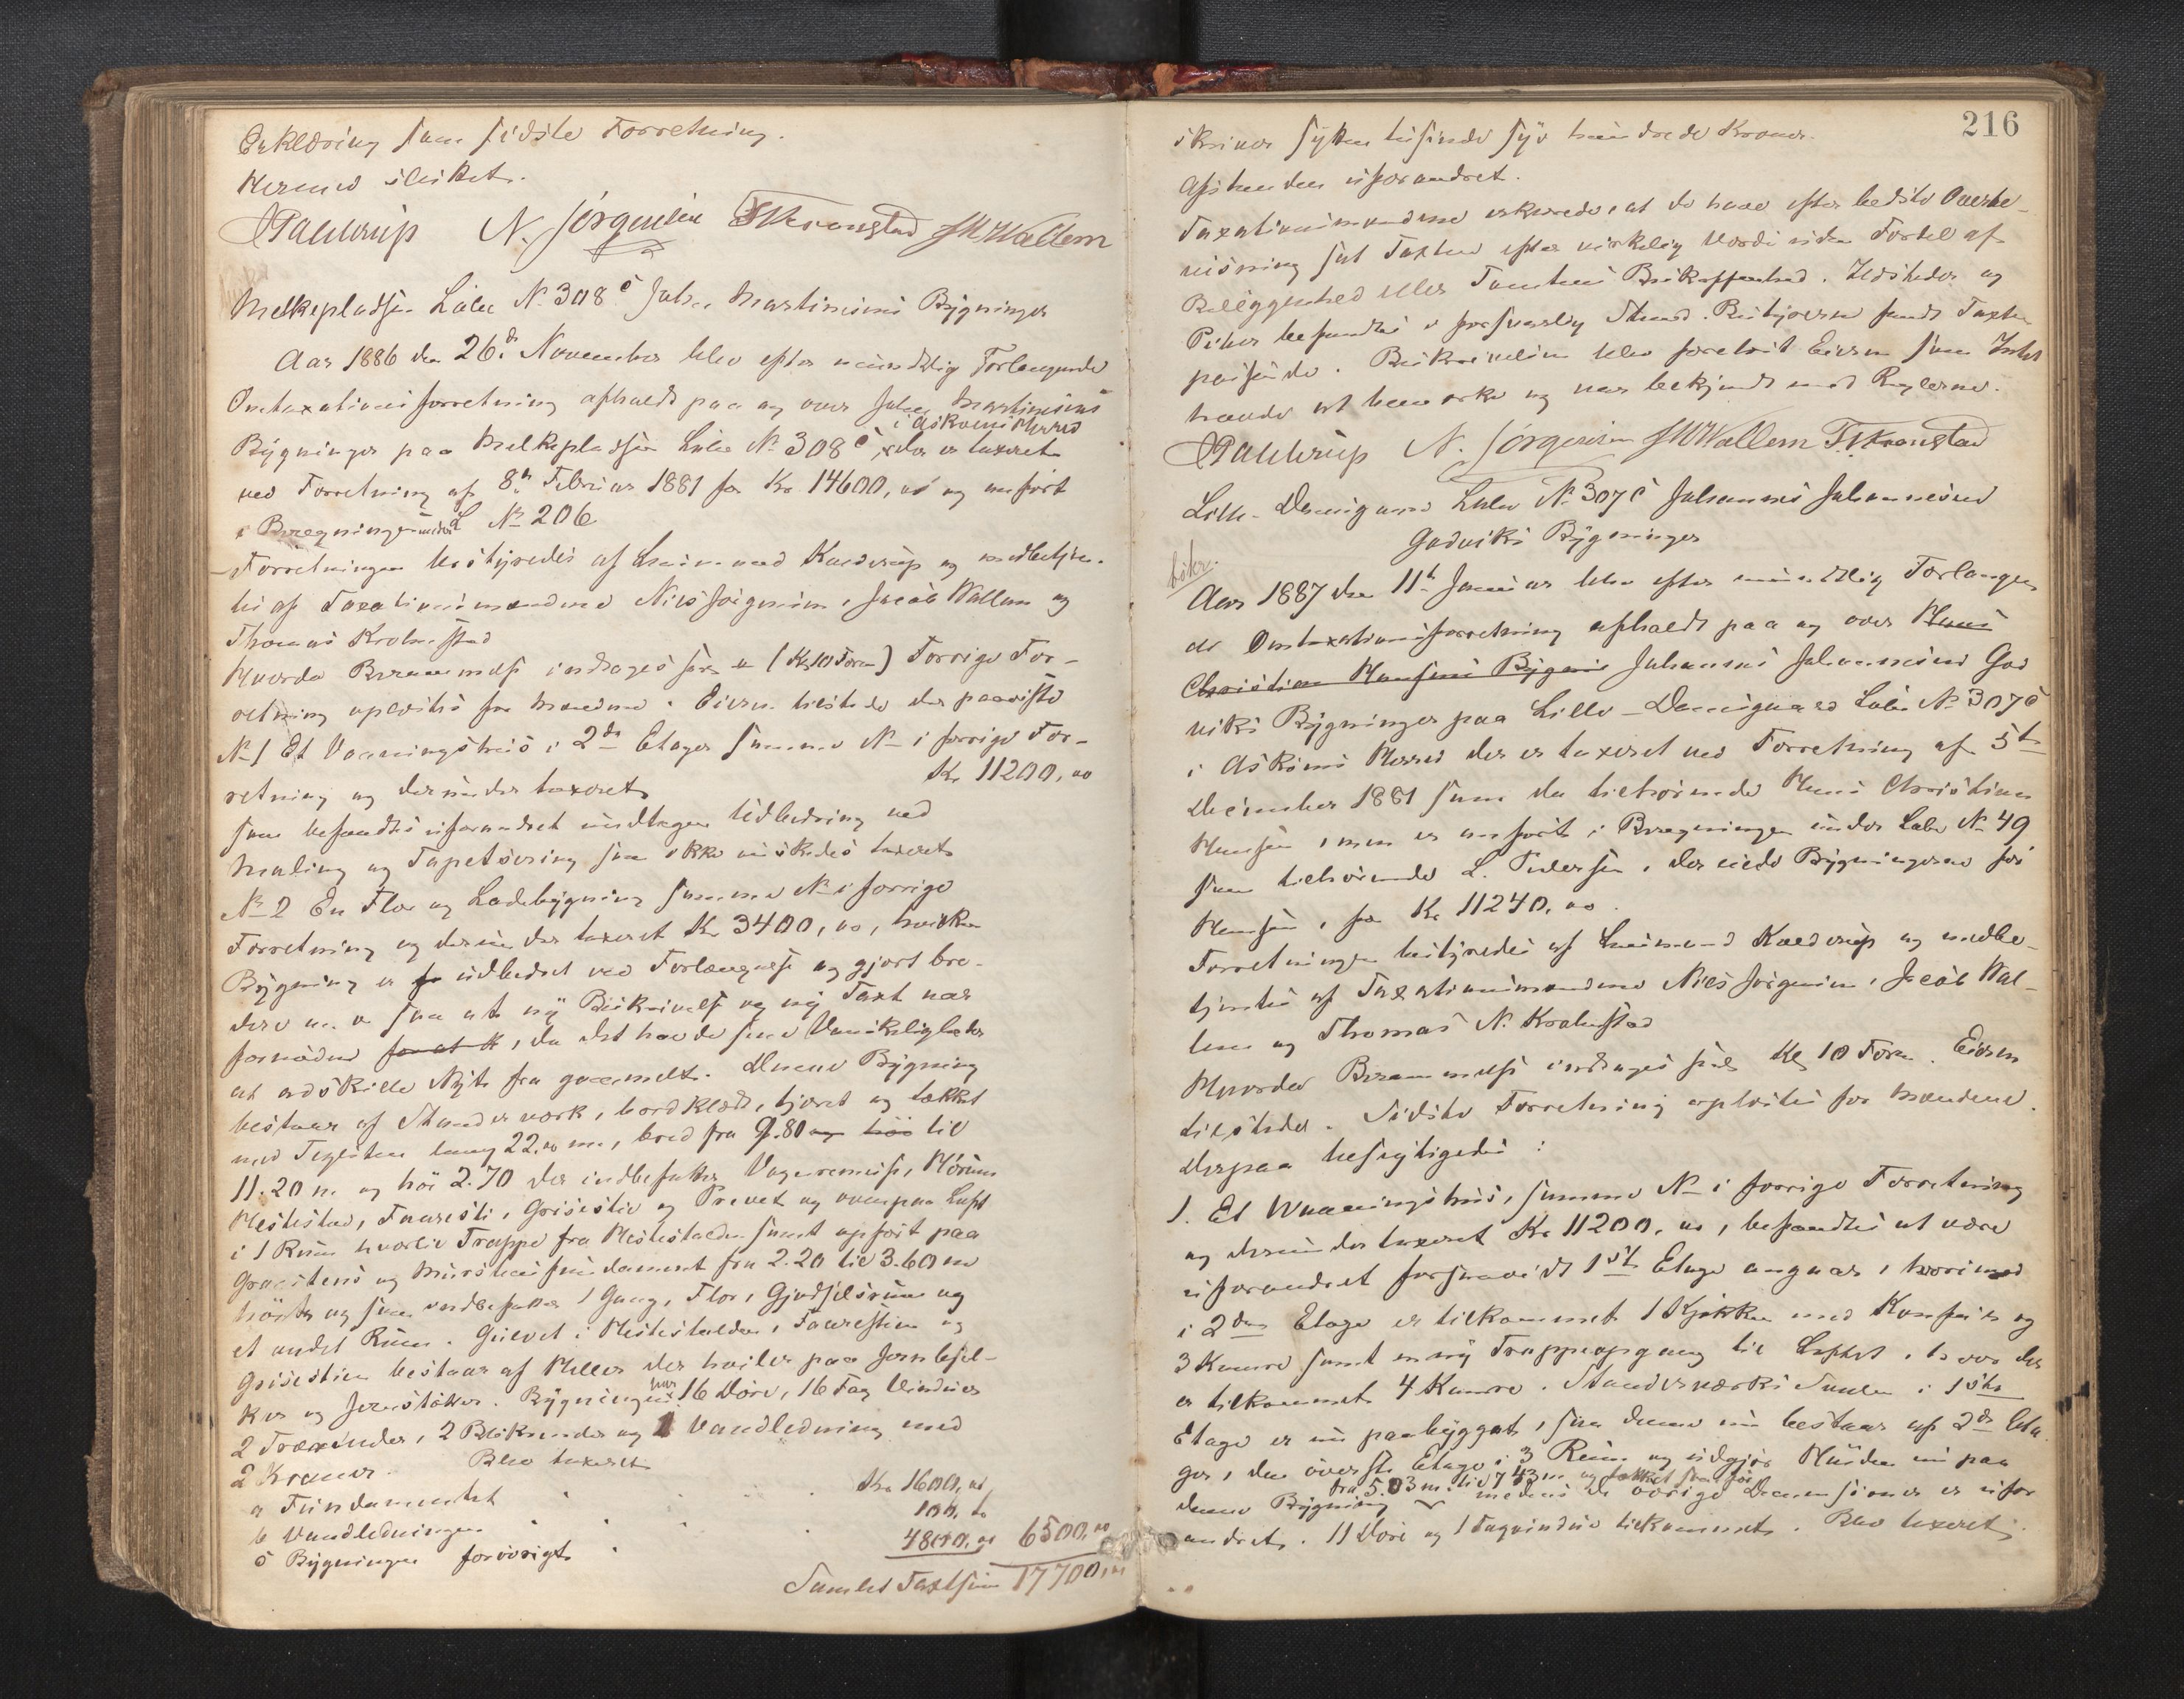 Erklæring som sidste Forretning.
Herred sluttet.
N. Jörgensen T Kronstad JM Wallem
Melkepladsen Löbe N. 308 c Johan Martinsens Bygninger
Aar 1886 den 26de November blev efter mundtlig Forlangende
Omtaxationsforretning afholdt paa og over Johan Martinsens
i Asköens Herred
Bygninger paa Melkepladsen Löbe N. 308 c, der er taxeret
ved Forretning af 8de Februar 1881 for Kr 14600,00 og anført
i Beregningen under L No 206
Forretningen bestyredes af Lensmand og medbetjen-
tes af Taxationsmændene Nils Jörgensen, Jacob Wallem og
Thomas Krohnstad
Hvorda Berammelse inddrages (Kl 10 Form) Forrige For-
retning oplæstes for Mændene. Eieren tilstede der paaviste
No 1 Et Vaaningshus i 2de Etager samme No i forrige For-
retning og derunder taxeret Kr 11200,00
som befandtes uforandret undtagen Udbedring ved
Maling og Tapetsering som ikke önskedes taxeret
No 2 En Flor og Ladebygning samme No i forrige
Forretning og derunder taxeret Kr 3400,00, hvilken
Bygning er udbedret ved Forlængelse og gjort bre-
dere m. v. saa at ny Beskrivelse og ny Taxt var
fornöden, da det havde sine Vanskeligheder
at adskille Nyt fra gammelt. Denne Bygning
bestaar af Stænderværk, bordklædt, tjæret og tækket
med Teglsten lang 22.00 m, bred fra 9.80 til
11.20 m. og höi 2.70 der indbefatter Vognremise, Hörum
Hestestald, Faaresti, Grisesti og Privet og ovenpaa Loft
i 1 Rum hvortil Trappe fra Hestestalden samt opfört paa
Graastens og Murstens fundament fra 2.20 til 3.60 m
höit og som indbefatter 1 Gang, Flor, Gjödselsrum og
et andet Rum. Gulvet i Hestestalden, Faarestien og
Grisestien bestaar af Heller der hviler paa Jernbjel-
ker og Jernstötter. Bygningen har 16 Döre, 16 Fag Vinduer
2 Trærender, 2 Blikrender og 1 Vandledning med
2 Kraner. Blev taxeret
a Fundamentet Kr. 1600,00
b Vandledningen 100,00
c Bygningen forövrigt 4800,00 6500,00
Samlet Taxtsum 17700,00
216
skriver sytten tusinde syv hundrede Kroner.
Afstanden uforandret.
Taxationsmændene erklærede, at de have efter bedste Overbe-
visning sat Taxten efter virkelig Værdi uden Fordel af
Beliggenhed eller Tomtens Beskaffenhed. Ildsteder og
Piber befandtes i forsvarlig Stand. Bestyreren fandt Taxten
passende. Beskrivelsen blev forelæst Eieren som Intet
havde at bemærke og var bekjendt med Reglerne.
N. Jörgensen JM Wallem T. Kronstad
Lille-Damsgaard Löbe No 307 c Johannes Johannesens
Godviks Bygninger
Aar 1887 den 11te Januar blev efter mundtlig Forlangen
de Omtaxationsforretning afholdt paa og over Hans
Christian Hansens Bygnin Johannes Johannesens God
viks Bygninger paa Lille-Damsgaard Löbe No 307 c
i Asköens Herred der er taxeret ved Forretning af 5te
December 1881 som da tilhörende Hans Christian
Hansen, men er anfört i Beregningen under Löbe No 49
som tilhörende L. Pedersen, der eiede Bygningerne för
Hansen, for Kr 11240,00.
Forretningen bestyredes af Lensmand og medbe-
tjentes af Taxationsmændene Nils Jörgensen, Jacob Wal-
lem og Thomas N. Krohnstad
Hvordes Berammelse inddrages Kl 10 Form. Eieren
tilstede. Sidste Forretning oplæstes for Mændene.
Derpaa besigtigedes:
1. Et Waaningshus, samme No i forrige Forretning
og derunder taxeret Kr 11200,00, befandtes at være
uforandret forsaavidt 1ste Etage angaar, hvorimod
i 2den Etage er tilkommet 1 Kjökken med Komfur og
3 Kamre samt en ny Trappeopgang til Loftet, hvor der
er tilkommet 4 Kamre. Stænderværks i 1ste
Etage er nu paabygget, saa denne nu bestaar af 2de Eta
ger, den överste Etage i 3 Rum og udgjör Höiden nu paa
fra 5.03 m. til 7.43 m og tækket som för
denne Bygning medens de övrige Dimensioner er ufor
andret. 11 Döre og 1 Fagvindue tilkommet. Blev taxeret